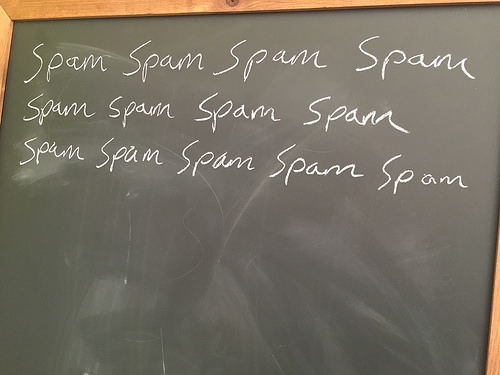 Spam Spam Spam Spam
Spam Spam Spam Spam
Spam Spam Spam Spam Spam